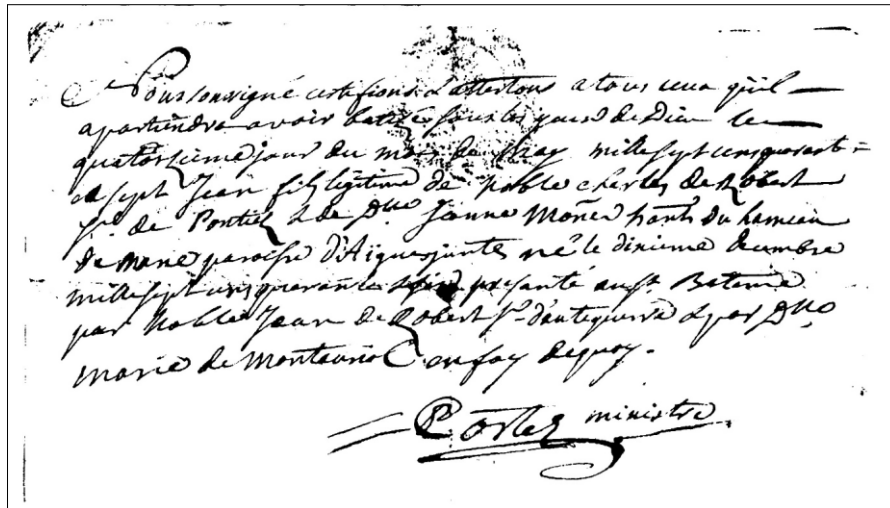 Nous soussigné certifions & attestons a tous ceux qu'il
apartiendra avoir batisé sous les yeux de Dieu le
quatorsieme jour du mois de May mille sept cens quarant=
e sept Jean fils legitime de Noble charles de Robert
sr. de Pontiés & de Dlle Janne habts du hameau
de mane paroisse d'Aiguesjuntes né le dixieme decembre
mille sept cens quarante presanté au st. Bateme
par Noble Jean de Robert sr. d'auteguerre & par Dlle
marie de en foy dequoy.
ministre